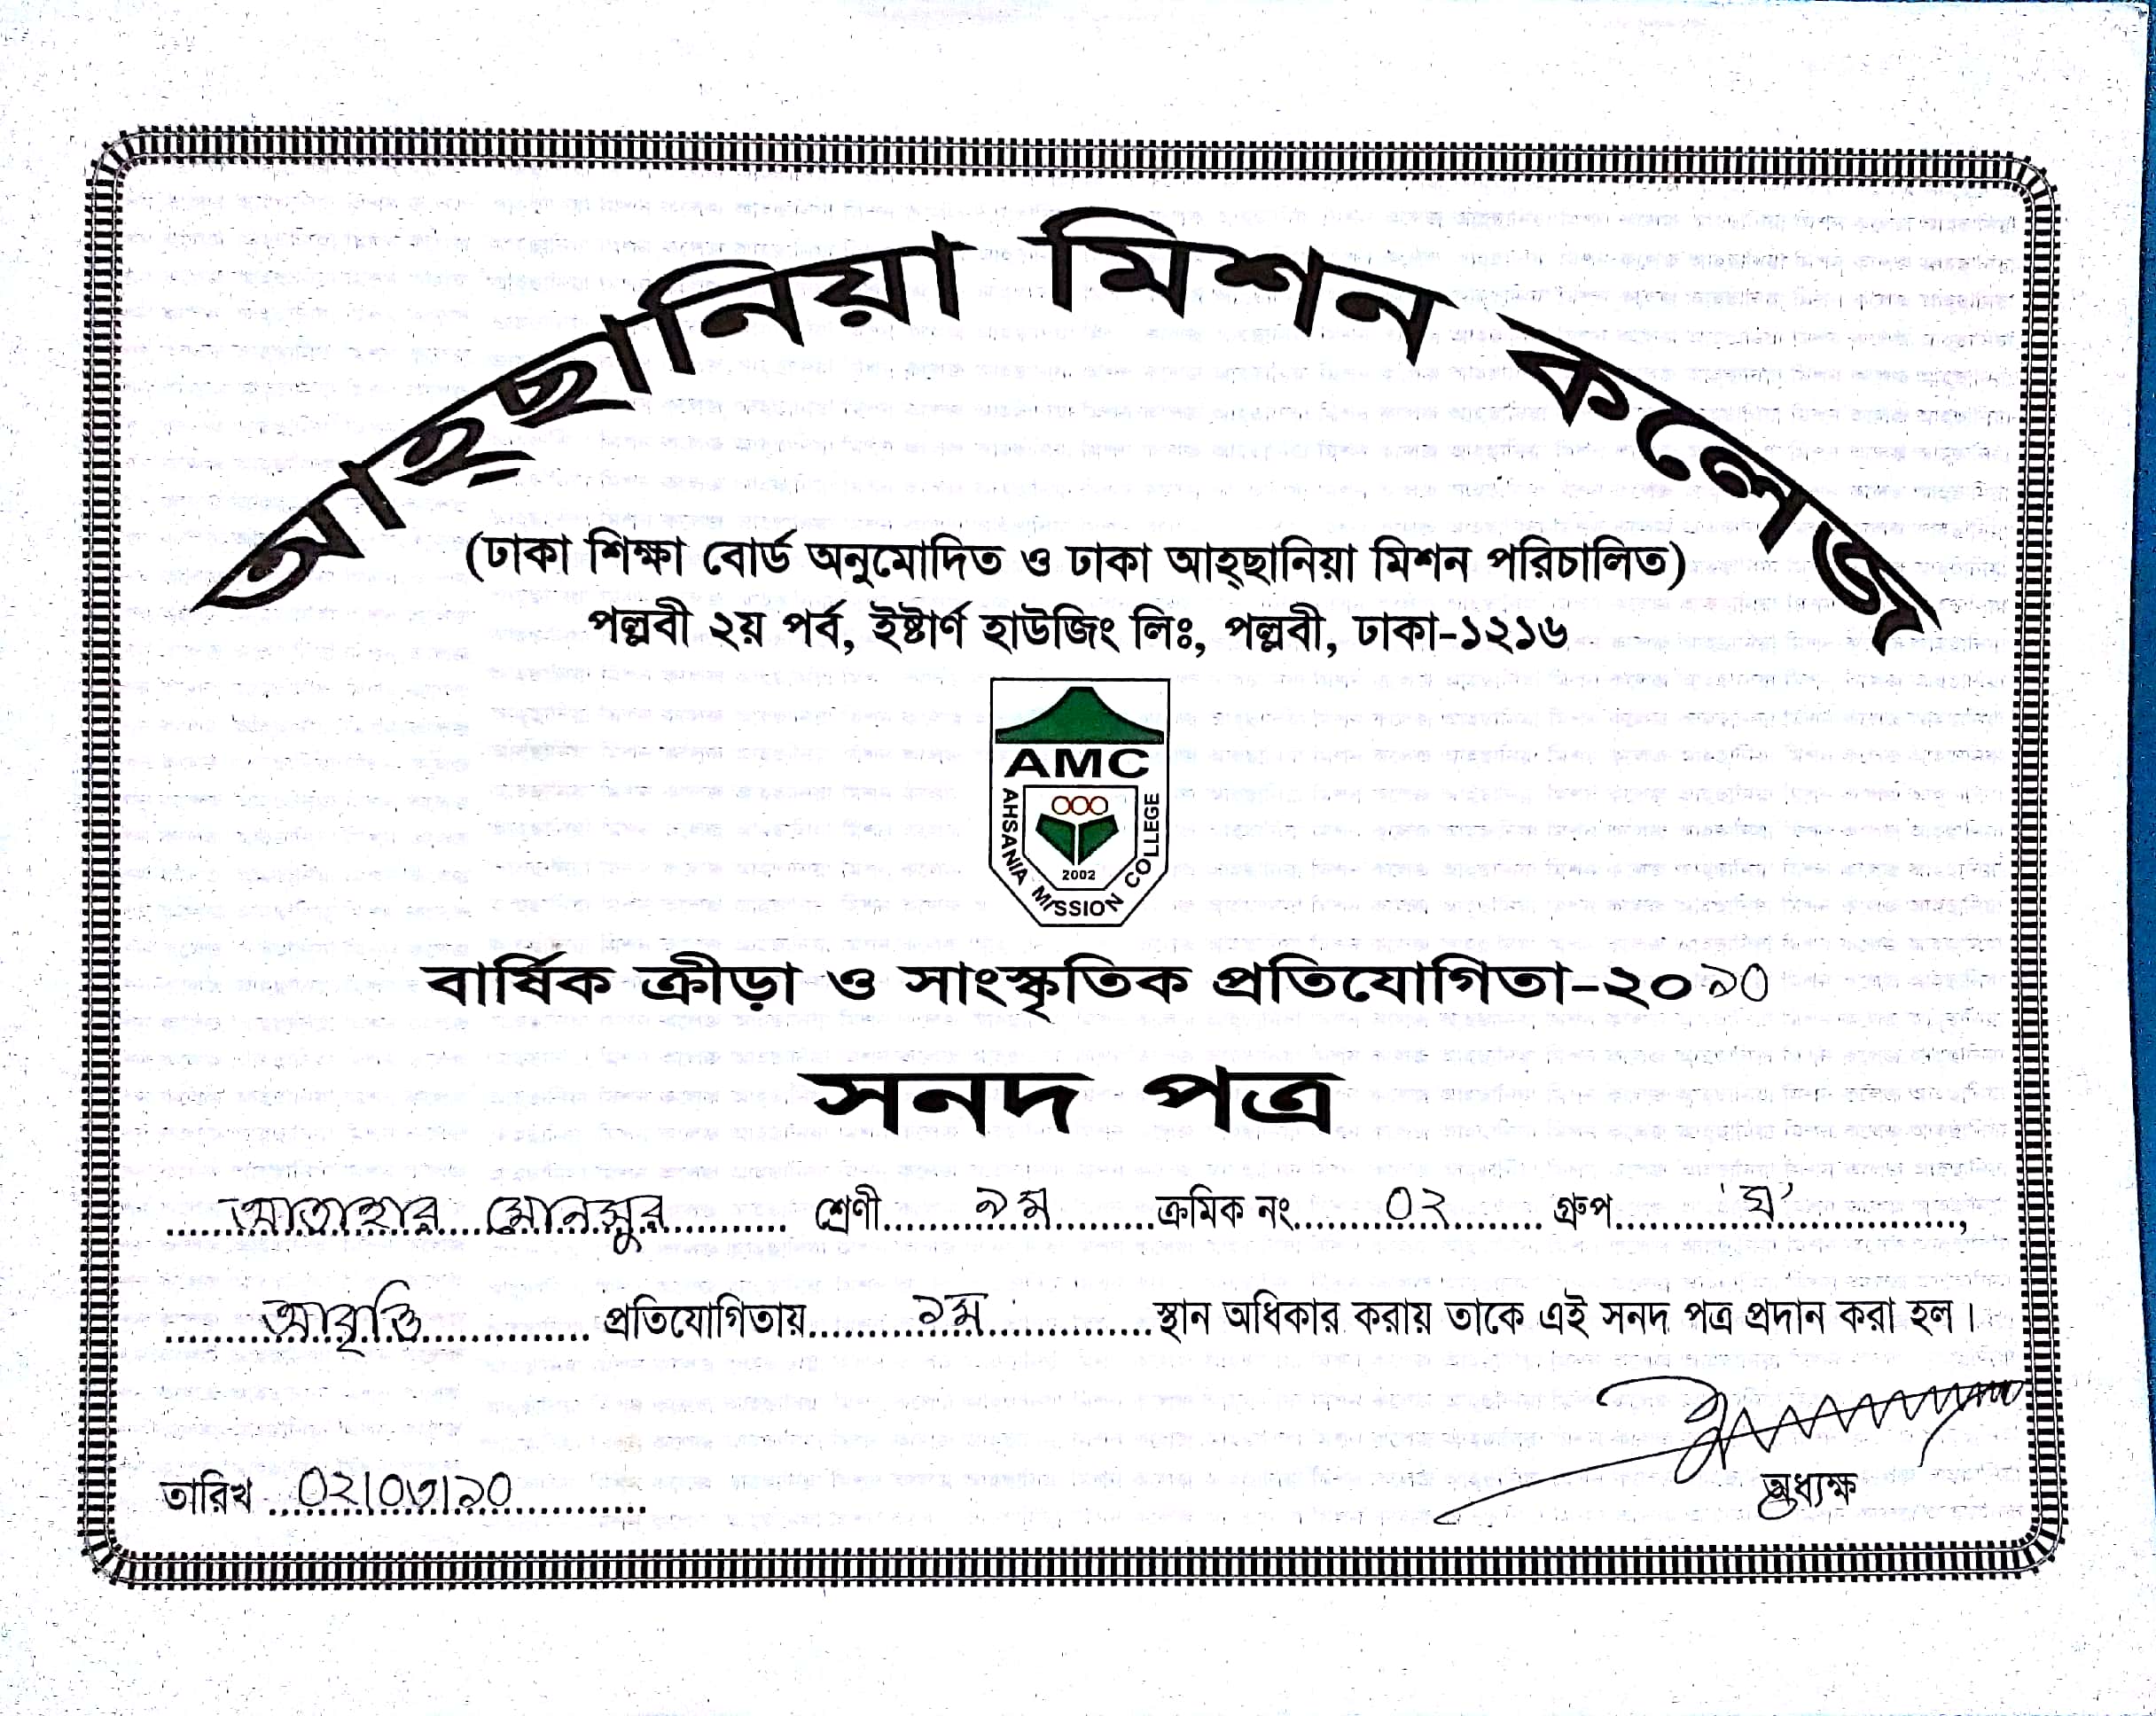 আহ্ছানিয়া মিশন কলেজ
(ঢাকা শিক্ষা বোর্ড অনুমোদিত ও ঢাকা আহ্ছানিয়া মিশন পরিচালিত)
পল্লবী ২য় পর্ব, ইষ্টার্ণ হাউজিং লিঃ, পল্লবী, ঢাকা-১২১৬
AMC
AHSANIA MISSION COLLEGE
2002
বার্ষিক ক্রীড়া ও সাংস্কৃতিক প্রতিযোগিতা-২০১০
সনদ পত্র
আতাহার মোনসুর শ্রেণী ৯ম ক্রমিক নং ০২ গ্রুপ 'ঘ',
আবৃত্তি প্রতিযোগিতায় ১ম স্থান অধিকার করায় তাকে এই সনদ পত্র প্রদান করা হল।
তারিখ ০২|০৩|১০
অধ্যক্ষ